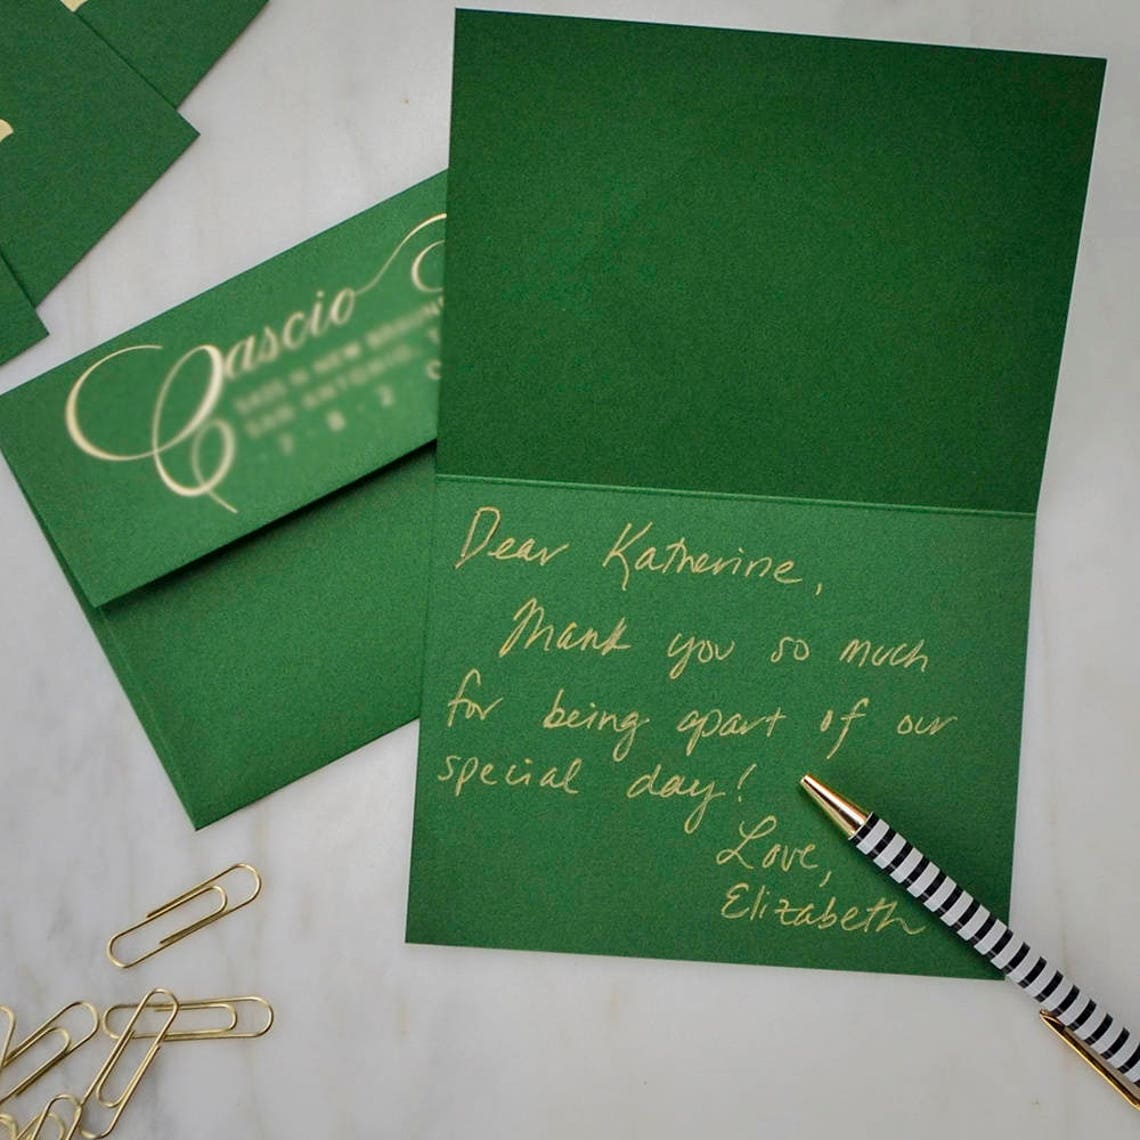 Cascio
Dear Katherine,
Thank you so much
for being apart of our
special day!
Love,
Elizabeth